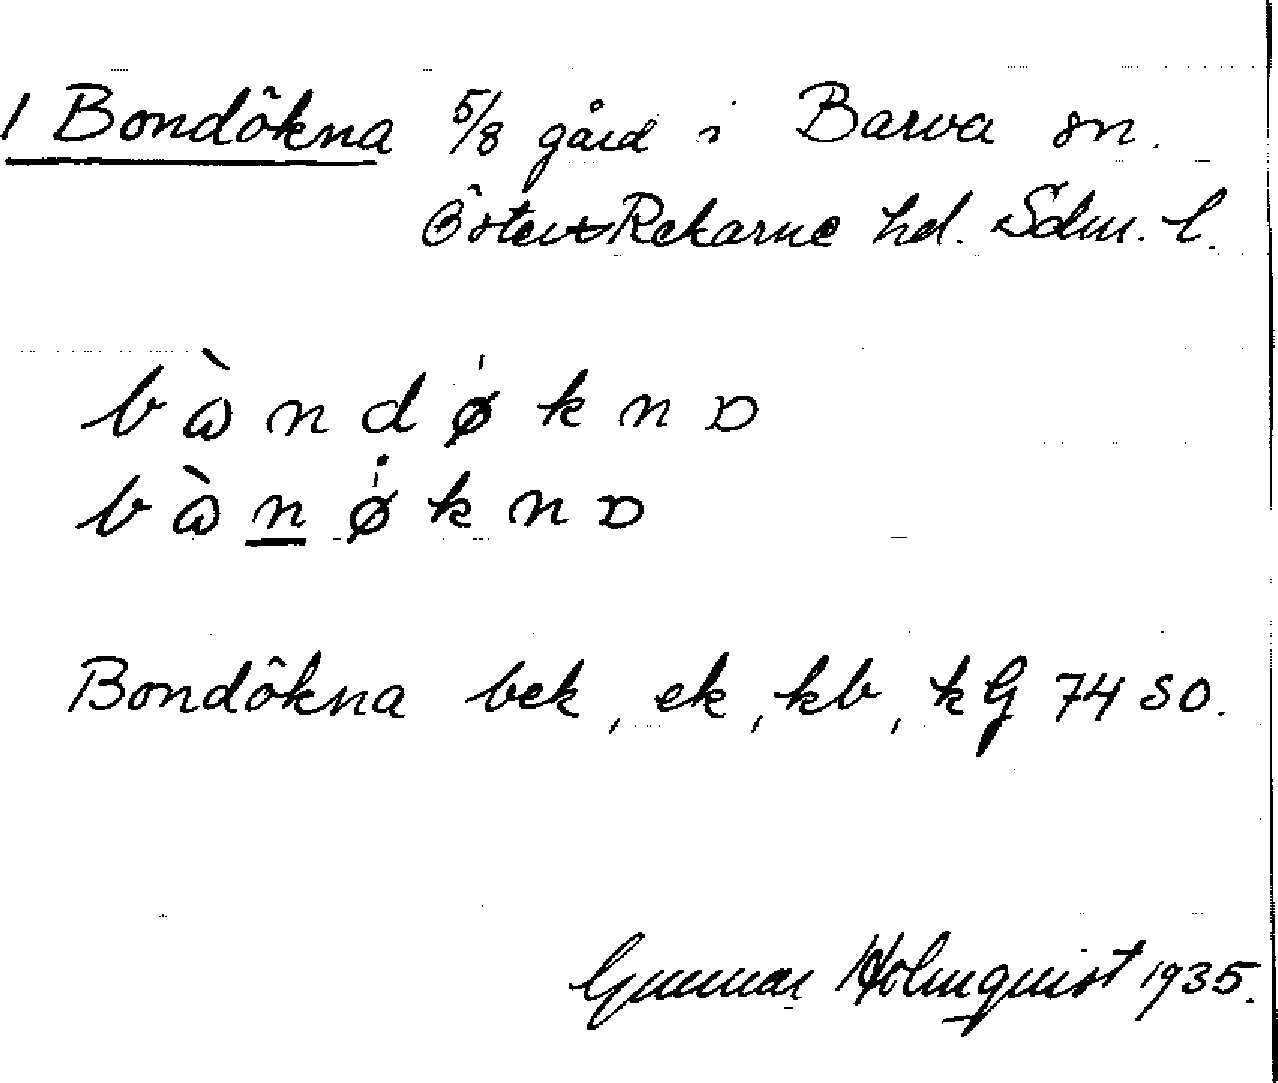 1 Bondökna 5/8 gård i Barva sn.
Öster Rekarne hd. Sdm. l.
bàndøkna
bànøkna
Bondökna bek, ek, kb, kG 74 SO.
Gunnar Holmquist 1935.